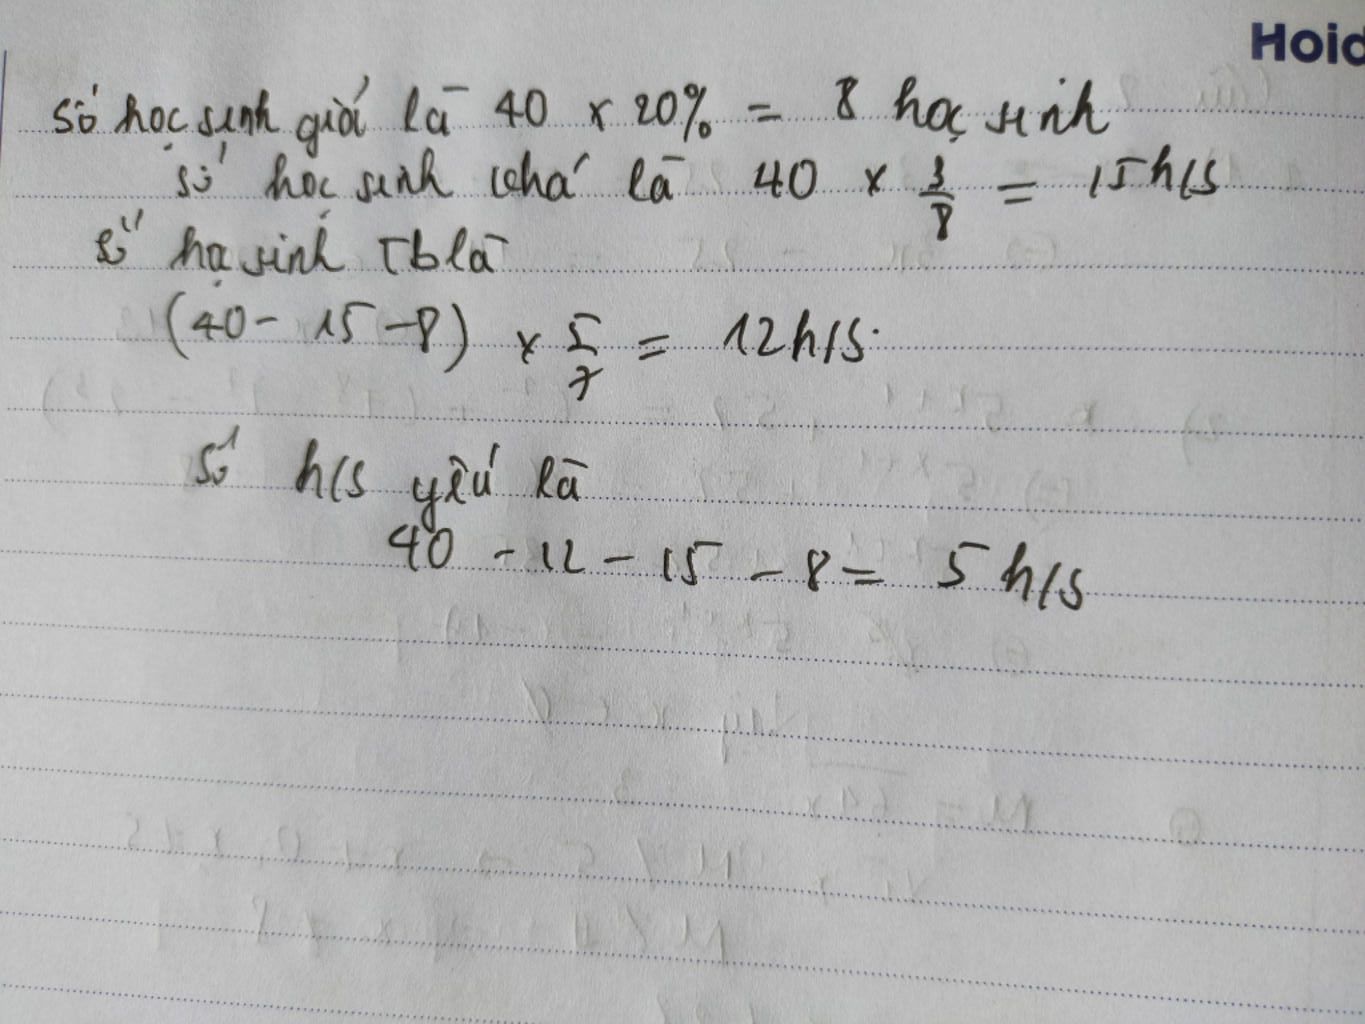 Hoid
Số học sinh giỏi là 40 x 20% = 8 học sinh
số học sinh khá là 40 x 3/8 = 15 h/s
Số học sinh Tb là
(40 - 15 - 8) x 5/7 = 12 h/s.
Số h/s yếu là
40 - 12 - 15 - 8 = 5 h/s